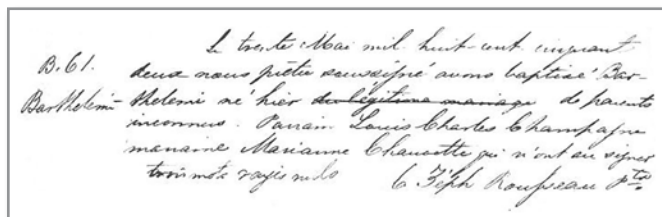 Le trente Mai mil huit-cent cinquant
B.61. deux nous prêtre soussigné avons baptisé Bar-
Barthelemi thelemi né hier du légitime mariage de parents
inconnus. Parrain Louis Charles Champagne
marraine Marianne Chaurette qui n'ont su signer
trois mots rayés nuls C Zéph Rousseau Ptre